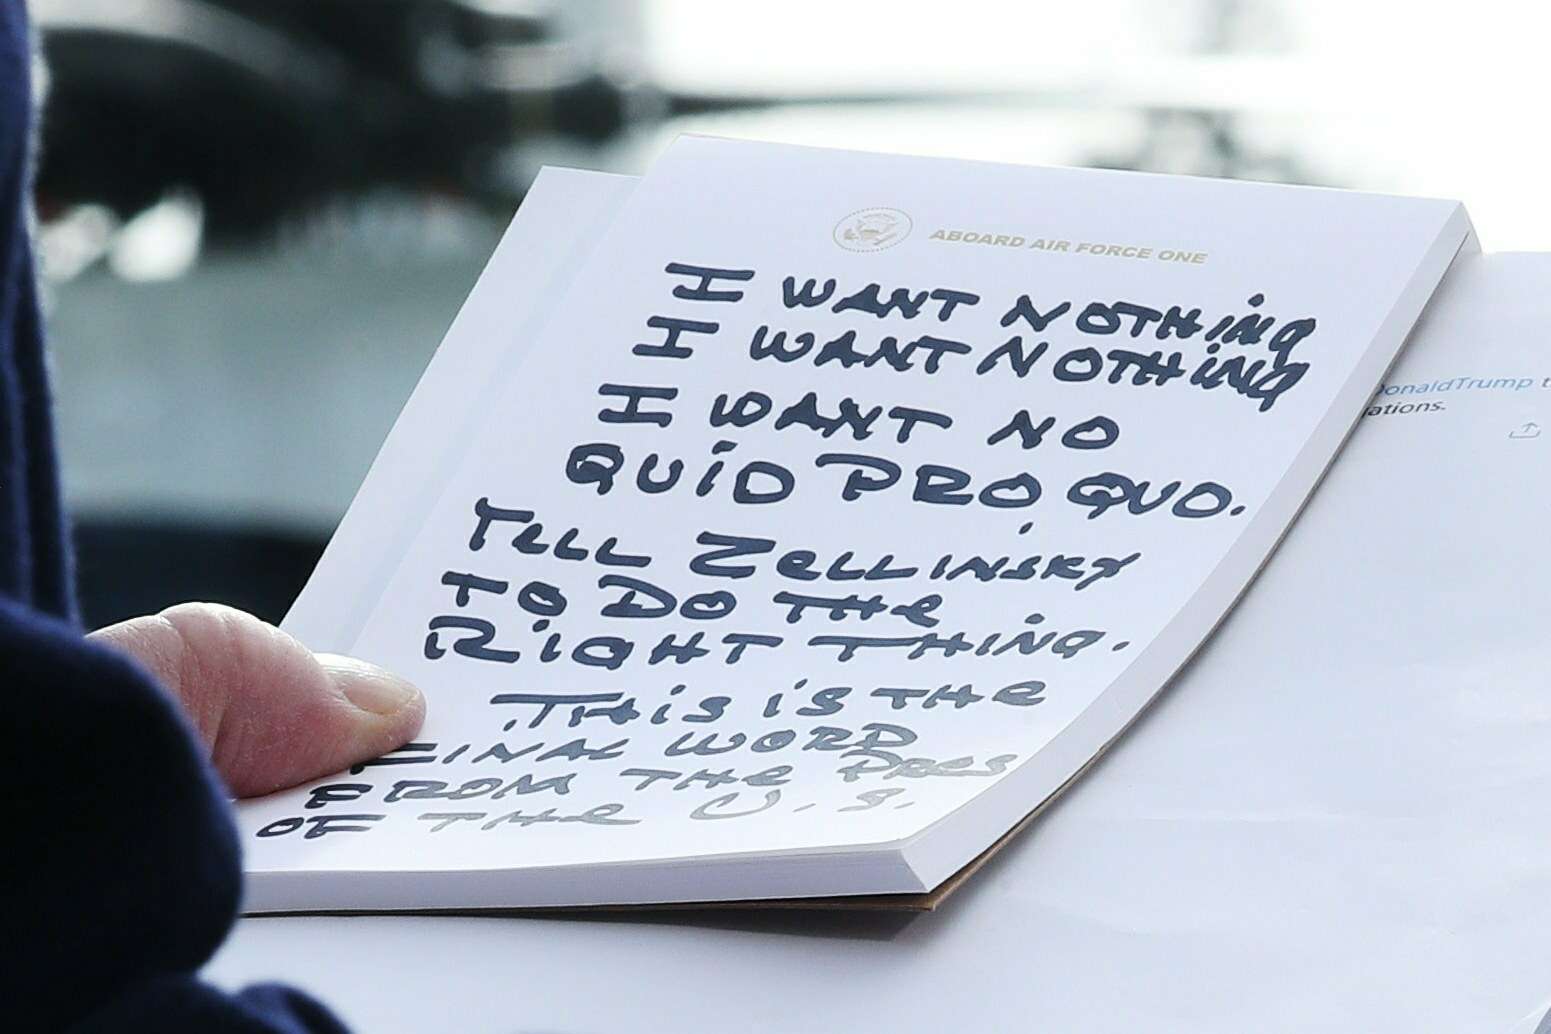 ABOARD AIR FORCE ONE
I WANT NOTHING
I WANT NOTHING
I WANT NO
QUID PRO QUO.
TELL ZELLINSKY
TO DO THE
RIGHT THING.
THIS IS THE
FINAL WORD
FROM THE PRES
OF THE U.S.
DonaldTrump t
ations.